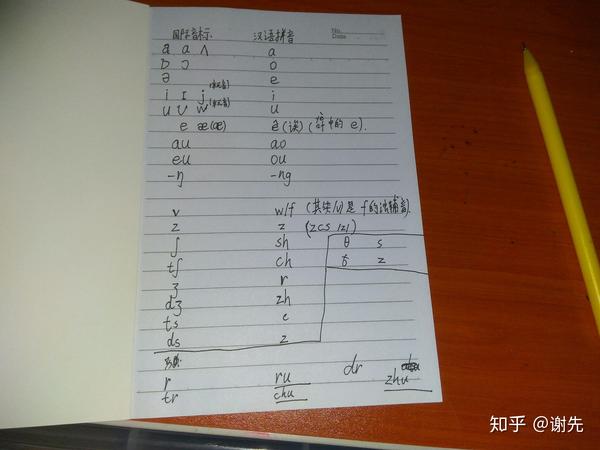 国际音标 汉语拼音 No.
Date
a ɑ ʌ a
ɒ ɔ o
ə e
i ɪ j(半元音) i
u ʊ w(半元音) u
e æ(œ) ê(诶)(给中的 e).
au ao
eu ou
-ŋ -ng
v w/f (其实/v/是 f的浊辅音)
z z (zcs /z/)
ʃ sh θ s
tʃ ch ð z
ʒ r
dʒ zh
ts c
ds z
r ru dr zhu
tr chu
知乎 @谢先